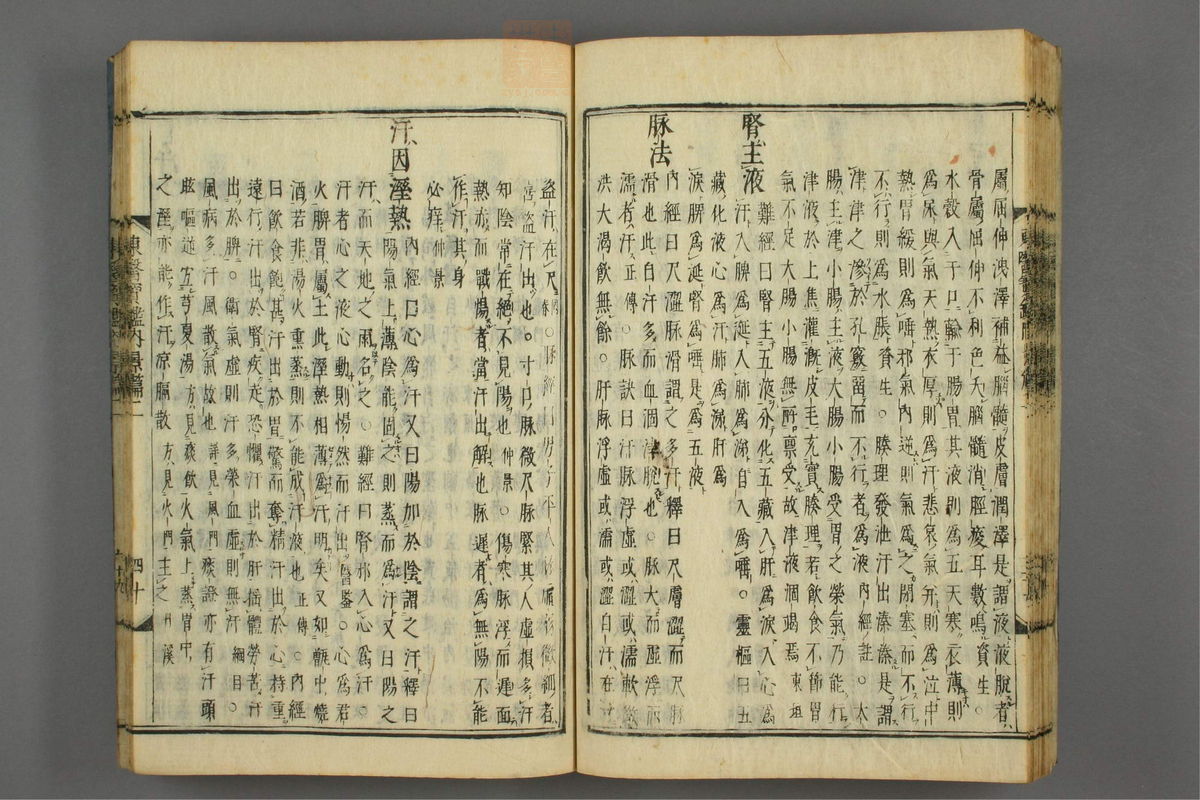 屬屈伸洩澤補益腦髓皮膚潤澤是謂液液脫者
骨屬屈伸不利色夭腦髓消脛痠耳數鳴
水穀入于口輸于腸胃其液別爲五天寒衣薄則
爲尿與氣天熱衣厚則爲汗悲哀氣并則爲泣中
熱胃緩則爲唾邪氣內逆則氣爲之閉塞而不行
不行則爲水脹
津津之滲於孔竅留而不行者爲液
腸主津小腸主液大腸小腸受胃之榮氣乃能行
津液於上焦灌漑皮毛充實腠理若飮食不節胃
氣不足大腸小腸無所稟受故津液涸竭焉東垣
腎主液
難經曰腎主五液分化五藏入肝爲淚入心爲
汗入脾爲涎入肺爲涕自入爲唾○靈樞曰五
藏化液心爲汗肺爲涕肝爲
淚脾爲涎腎爲唾是爲五液
脉法
內經曰尺澀脉滑謂之多汗釋曰尺膚澀而尺脉
滑也此自汗多而血涸津脫也○脉大而虛浮而
濡者汗正傳○脉訣曰汗脉浮虛或澀或濡軟散
洪大渴飮無餘○肝脉浮虛或濡或澀自汗在
盜汗在尺
當盜汗出也○寸口脉微尺脉緊其人虛損多汗
知陰常在絕不見陽也仲景○傷寒脉浮而遲面
熱赤而戰惕者當汗出解也脉遲者爲無陽不能
作汗其身
必痒仲景
汗因溼熱
內經曰心爲汗又曰陽加於陰謂之汗釋曰
陽氣上薄陰能固之則蒸而爲汗又曰陽之
汗以天地之雨名之○難經曰腎邪入心爲汗○
汗者心之液心動則惕然而汗出醫鑑○心爲君
火脾胃屬土此溼熱相薄爲汗明矣又如甑中燒
酒若非湯火熏蒸則不能成汗液也正傳○內經
曰飮食飽甚汗出於胃驚而奪精汗出於心持重
遠行汗出於腎疾走恐懼汗出於肝搖體勞苦汗
出於脾○衛氣虛則汗多榮血虛則無汗綱目○
風病多汗風散氣故也詳見風門痰證亦有汗頭
眩嘔逆宜芎夏湯方見痰飮火氣上蒸胃中
之溼亦能作汗涼膈散方見火門主之丹溪